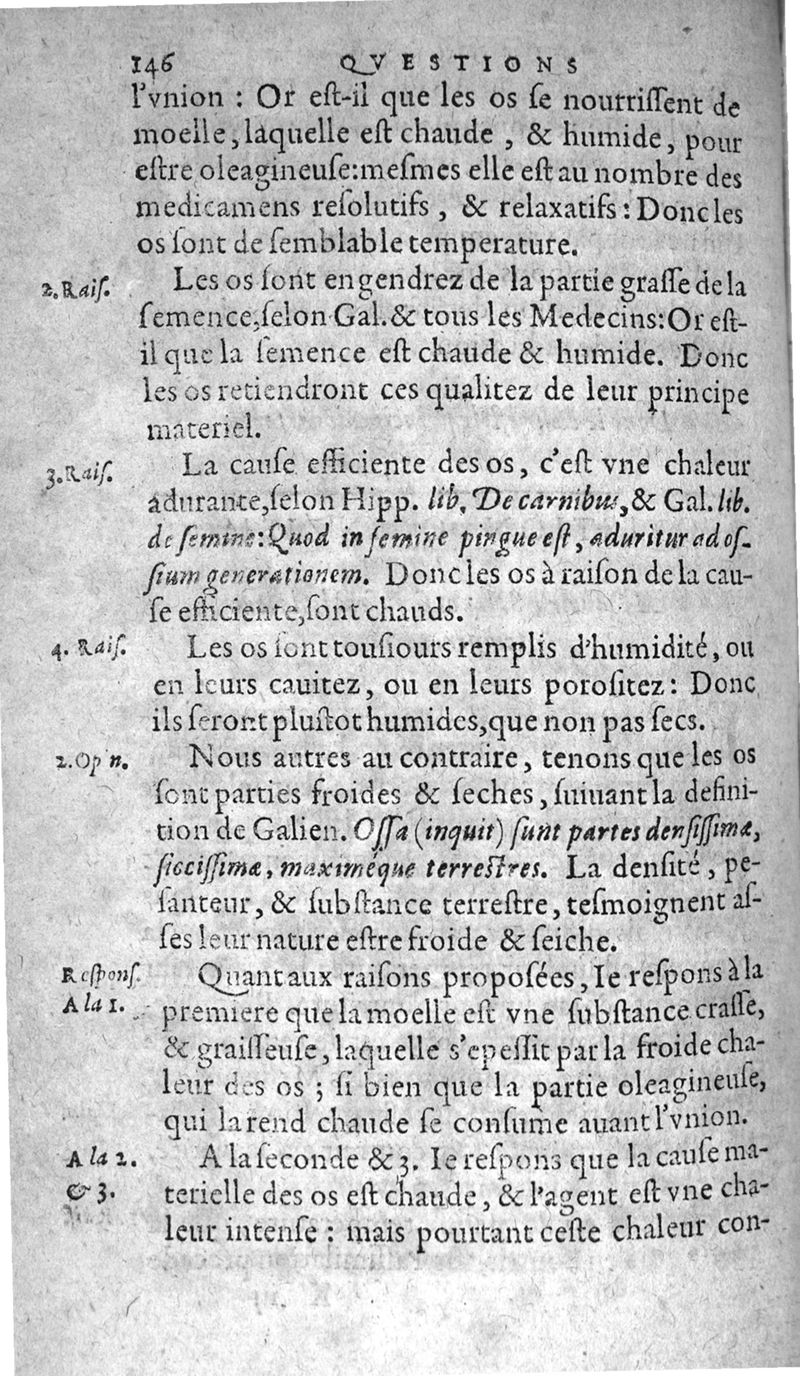 146 QVESTIONS
l'vnion : Or eſt-il que les os ſe nourriſſent de
moelle, laquelle eſt chaude , & humide, pour
eſtre oleagineuſe: meſmes elle eſt au nombre des
medicamens reſolutifs , & relaxatifs : Donc les
os ſont de ſemblable temperature.
2. Raiſ. Les os ſont engendrez de la partie graſſe de la
ſemence, ſelon Gal. & tous les Medecins: Or eſt-
il que la ſemence eſt chaude & humide. Donc
les os retiendront ces qualitez de leur principe
materiel.
3. Raiſ. La cauſe efficiente des os, c'eſt vne chaleur
adurante, ſelon Hipp. lib. De carnibus, & Gal. lib.
de ſemine: Quod in ſemine pingue eſt, aduritur ad oſ-
ſium generationem. Donc les os à raiſon de la cau-
ſe efficiente, ſont chauds.
4. Raiſ. Les os ſont touſiours remplis d'humidité, ou
en leurs cauitez, ou en leurs poroſitez : Donc
ils ſeront pluſtot humides, que non pas ſecs.
2. Op n. Nous autres au contraire, tenons que les os
ſont parties froides & ſeches, ſuiuant la defini-
tion de Galien. Oſſa (inquit) ſunt partes denſiſſimæ,
ſicciſſimæ, maximéque terreſtres. La denſité, pe-
ſanteur, & ſubſtance terreſtre, teſmoignent aſ-
ſes leur nature eſtre froide & ſeiche.
Reſponſ. Quant aux raiſons propoſées, Ie reſpons à la
A la 1. premiere que la moelle eſt vne ſubſtance craſſe,
& graiſſeuſe, laquelle s'epeſſit par la froide cha-
leur des os ; ſi bien que la partie oleagineuſe,
qui la rend chaude ſe conſume auant l'vnion.
A la 2. A la ſeconde & 3. Ie reſpons que la cauſe ma-
& 3. terielle des os eſt chaude, & l'agent eſt vne cha-
leur intenſe : mais pourtant ceſte chaleur con-